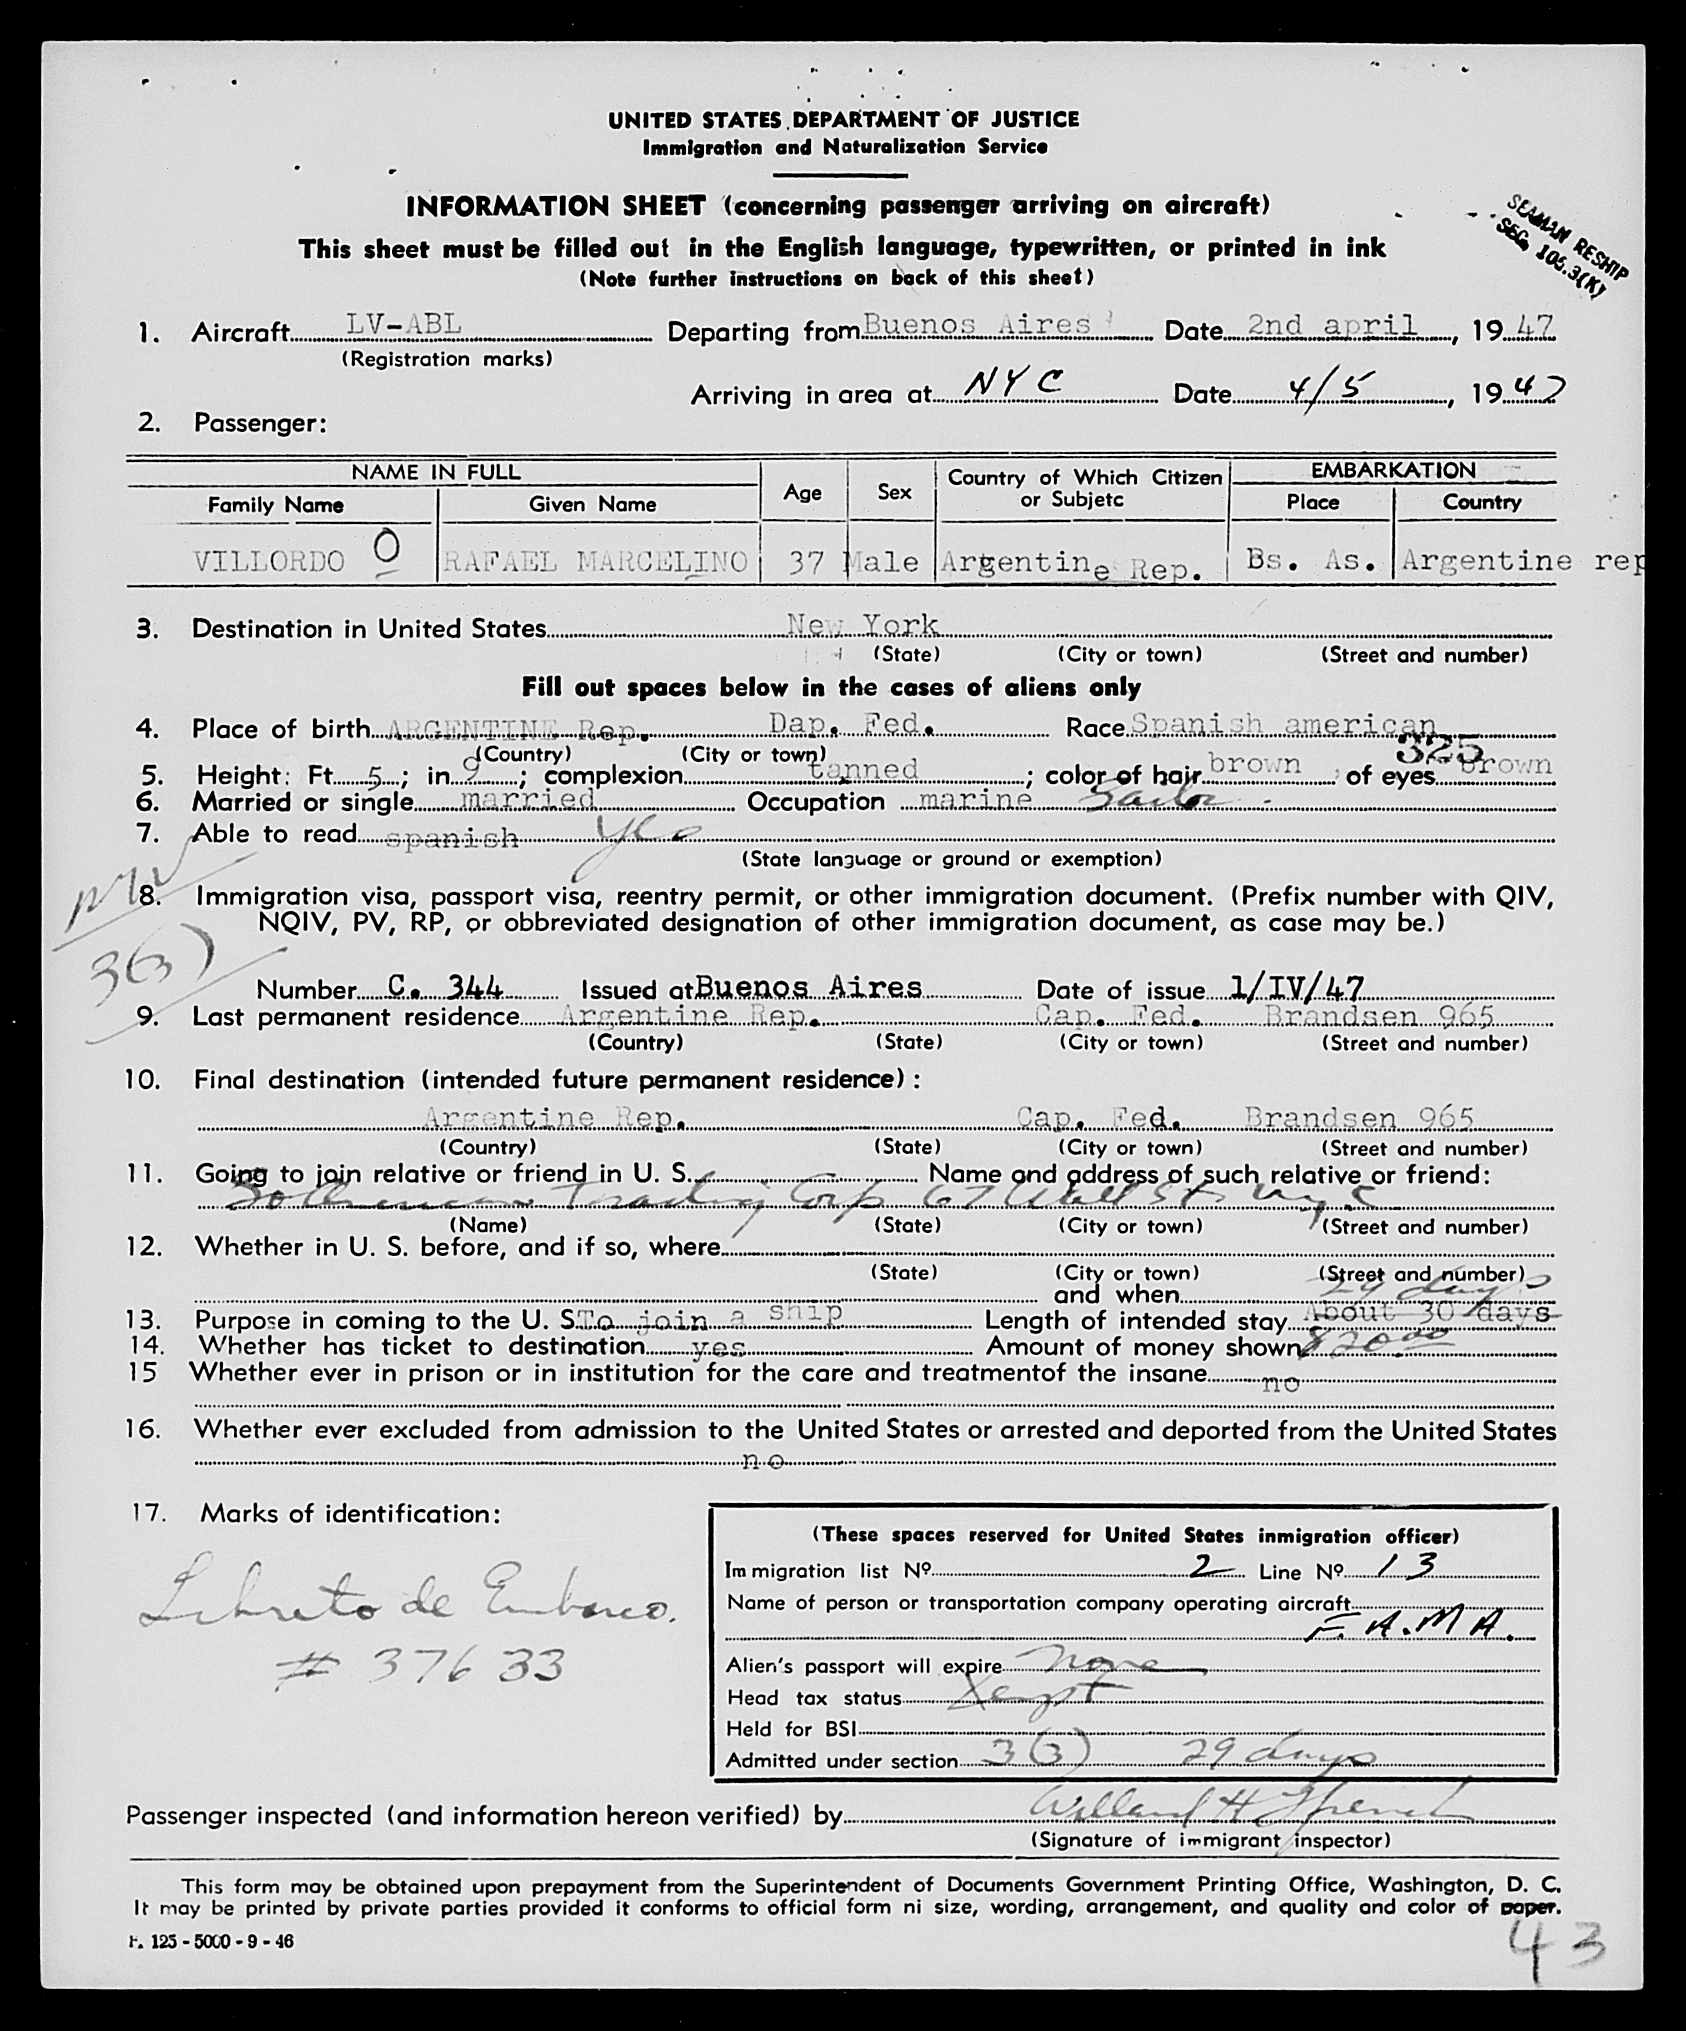 UNITED STATES DEPARTMENT OF JUSTICE
Immigration and Naturalization Service
INFORMATION SHEET (concerning passenger arriving on aircraft)
This sheet must be filled out in the English language, typewritten, or printed in ink
(Note further instructions on back of this sheet)
SEAMAN RESHIP
SEC. 105.3(K)
1. Aircraft LV-ABL Departing from Buenos Aires Date 2nd april, 19 47
(Registration marks)
Arriving in area at NYC Date 4/5, 19 47
2. Passenger:
NAME IN FULL Age Sex Country of Which Citizen or Subjetc EMBARKATION
Family Name Given Name Place Country
VILLORDO O RAFAEL MARCELINO 37 Male Argentine Rep. Bs. As. Argentine rep
3. Destination in United States New York
(State) (City or town) (Street and number)
Fill out spaces below in the cases of aliens only
4. Place of birth ARGENTINE Rep. Dap. Fed. Race Spanish american
(Country) (City or town) 325
5. Height: Ft. 5; in 9; complexion tanned; color of hair brown, of eyes brown
6. Married or single married Occupation marine Sailor.
7. Able to read spanish yes
(State language or ground or exemption)
8. Immigration visa, passport visa, reentry permit, or other immigration document. (Prefix number with QIV,
NQIV, PV, RP, or obbreviated designation of other immigration document, as case may be.)
3(3)
Number C. 344 Issued at Buenos Aires Date of issue 1/IV/47
9. Last permanent residence Argentine Rep. Cap. Fed. Brandsen 965
(Country) (State) (City or town) (Street and number)
10. Final destination (intended future permanent residence):
Argentine Rep. Cap. Fed. Brandsen 965
(Country) (State) (City or town) (Street and number)
11. Going to join relative or friend in U. S. Name and address of such relative or friend:
Trading Corp 67 Wall St NYC
(Name) (State) (City or town) (Street and number)
12. Whether in U. S. before, and if so, where
(State) (City or town) (Street and number)
and when
29 days
13. Purpose in coming to the U. S. To join a ship Length of intended stay About 30 days
14. Whether has ticket to destination yes Amount of money shown $20.00
15 Whether ever in prison or in institution for the care and treatmentof the insane no
16. Whether ever excluded from admission to the United States or arrested and deported from the United States
no
17. Marks of identification:
Libreto de Embarco.
# 37633
(These spaces reserved for United States inmigration officer)
Immigration list Nº 2 Line Nº 13
Name of person or transportation company operating aircraft
F.A.M.A.
Alien's passport will expire none
Head tax status Xempt
Held for BSI
Admitted under section 3(3) 29 days
Passenger inspected (and information hereon verified) by Willard H French
(Signature of immigrant inspector)
This form may be obtained upon prepayment from the Superintendent of Documents Government Printing Office, Washington, D. C.
It may be printed by private parties provided it conforms to official form ni size, wording, arrangement, and quality and color of paper.
F. 125 - 5000 - 9 - 46
43